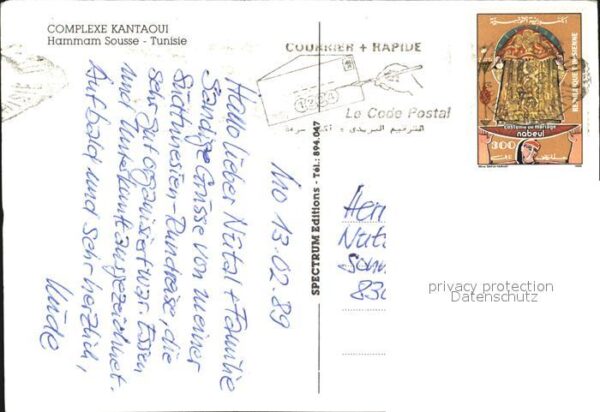 COMPLEXE KANTAOUI
Hammam Sousse - Tunisie
Mo 13.02.89
Hallo lieber Nütal + Familie
Sandige Grüsse von meiner
Südtunesien-Rundreise, die
sehr gut organisiert war. Essen
und Unterkunft ausgezeichnet.
Auf bald und sehr herzlich,
SPECTRUM Editions - Tél.: 894.047
COURRIER + RAPIDE
Le Code Postal
الترقيم البريدي = أكثر سرعة
REPUBLIQUE TUNISIENNE
Costume de Mariage
nabeul
300
Herr
Nüt
Sonn
830
privacy protection
Datenschutz